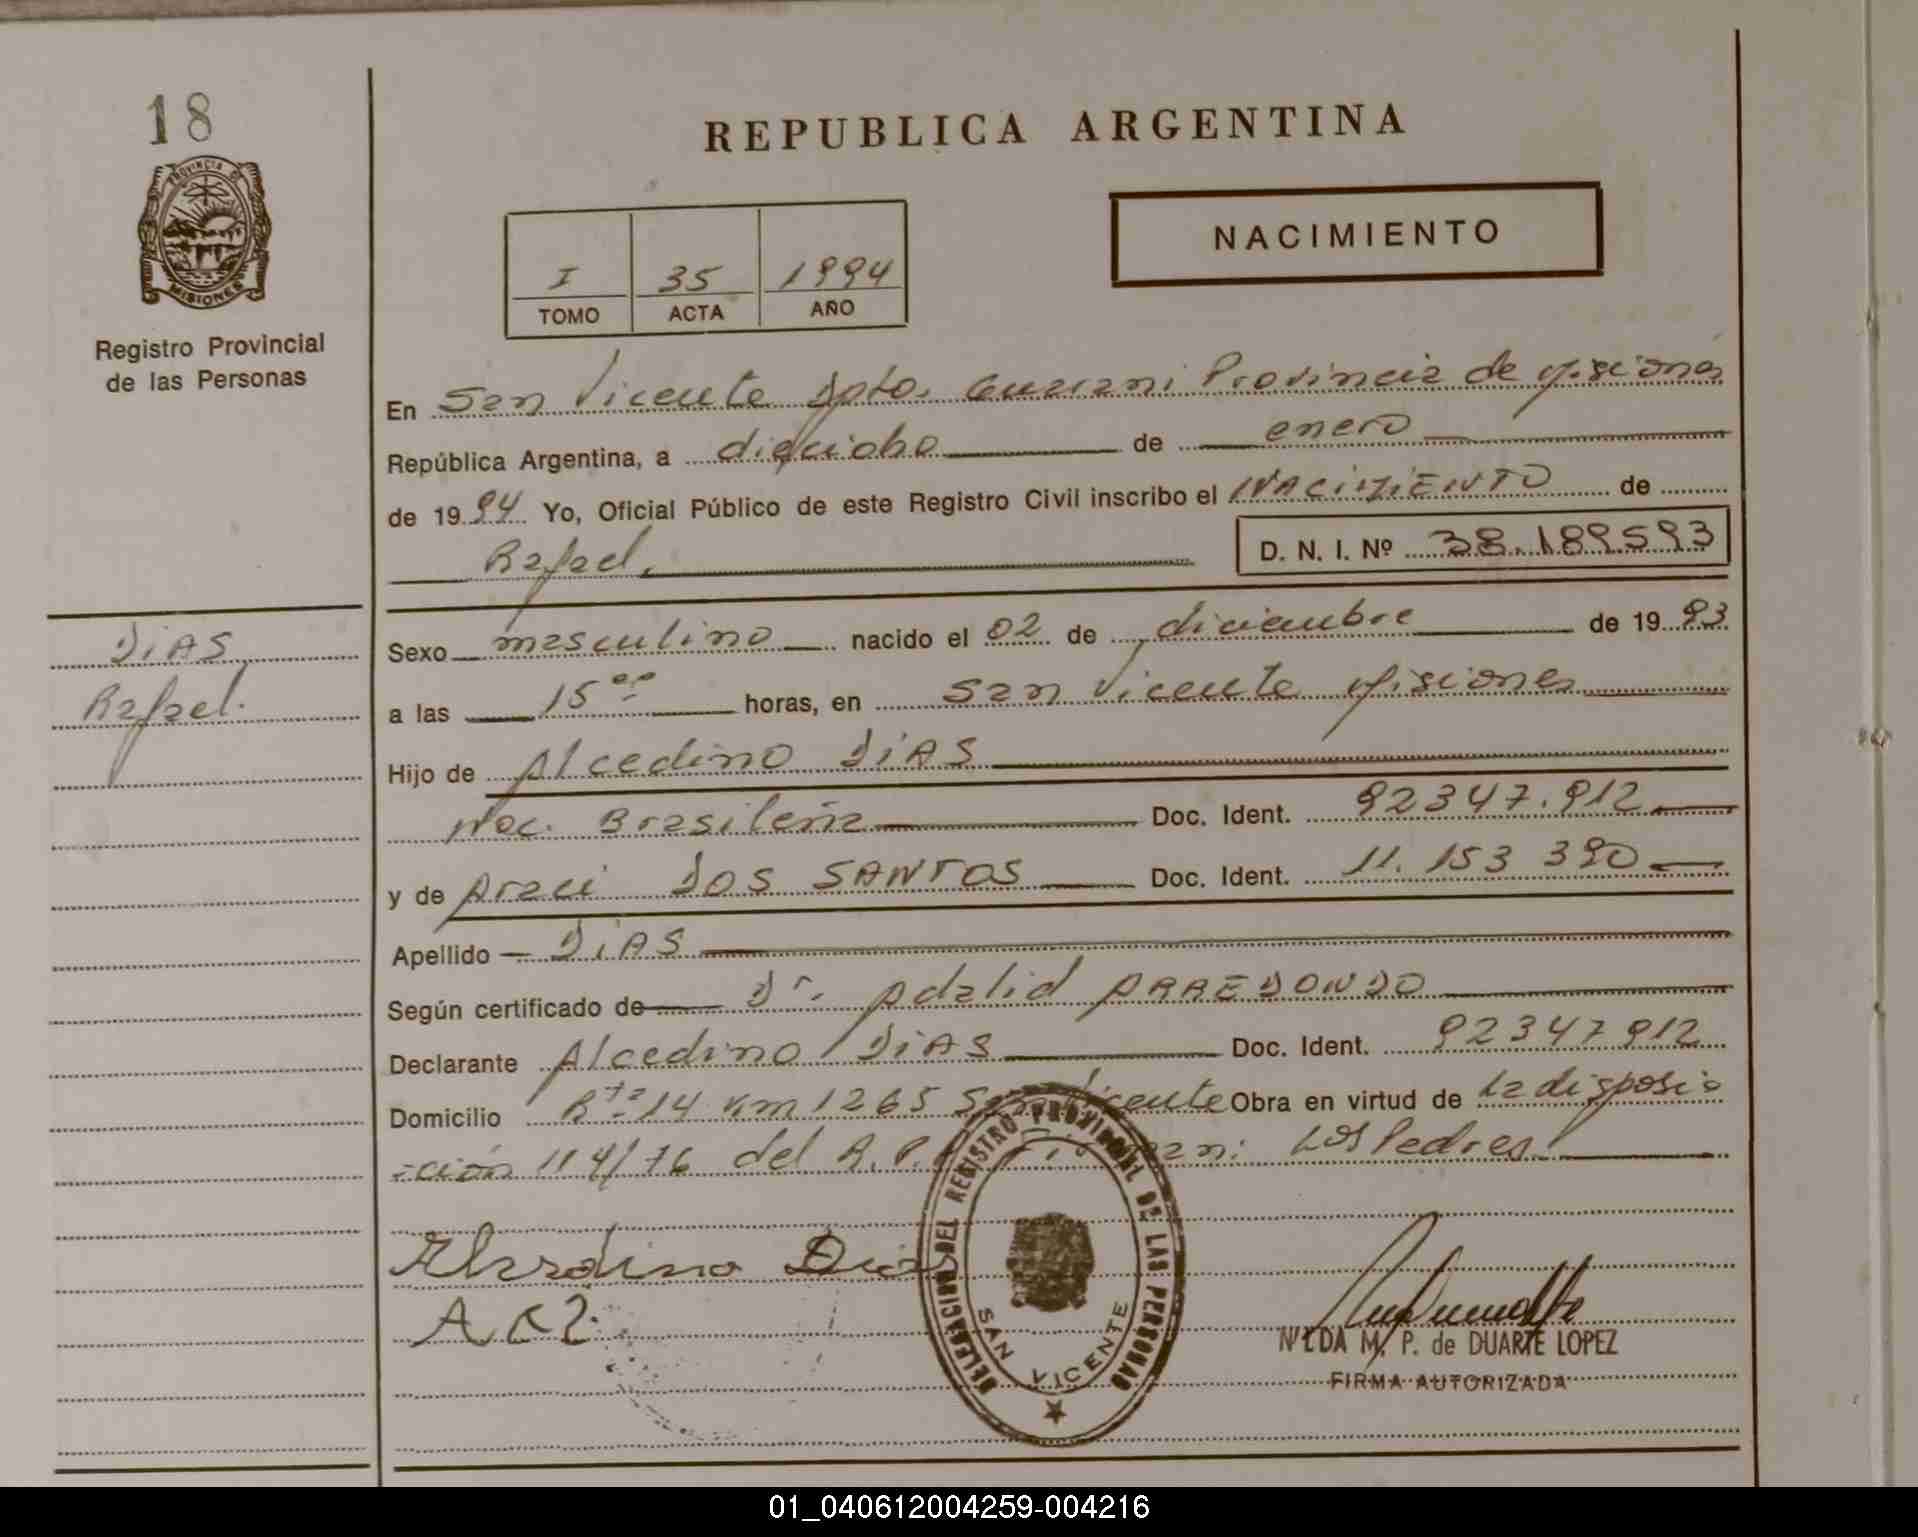 18
PROVINCIA DE
MISIONES
Registro Provincial
de las Personas
REPUBLICA ARGENTINA
NACIMIENTO
I 35 1994
TOMO ACTA AÑO
En San Vicente Dpto. Guarani Provincia de Misiones
República Argentina, a dieciocho de enero
de 1994 Yo, Oficial Público de este Registro Civil inscribo el NACIMIENTO de
Rafael. D. N. I. Nº 38.189593
DIAS
Rafael.
Sexo masculino nacido el 02 de diciembre de 1993
a las 15 00 horas, en San Vicente Misiones
Hijo de Alcedino DIAS
Nac. Brasileña Doc. Ident. 92347.912
y de Araci DOS SANTOS Doc. Ident. 11.153 390
Apellido DIAS
Según certificado de Dr. Adalid ARREDONDO
Declarante Alcedino DIAS Doc. Ident. 92347912
Domicilio Rta 14 Km 1265 San Vicente Obra en virtud de La disposi
ción 114/76 del R.P. Los Padres
Dias
NELDA M. P. de DUARTE LOPEZ
FIRMA AUTORIZADA
DELEGACION DEL REGISTRO PROVINCIAL DE LAS PERSONAS
SAN VICENTE
01_040612004259-004216